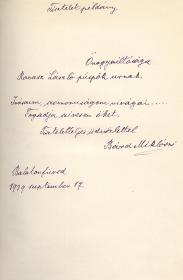 Tisztelet példány
Őnagyméltósága
Ravasz László püspök urnak.
Tavaszi
Fogadja szivesen őket.
Tiszteletteljes üdvözlettel
Bárd Miklós
Balatonfüred
1939 szeptember 17.